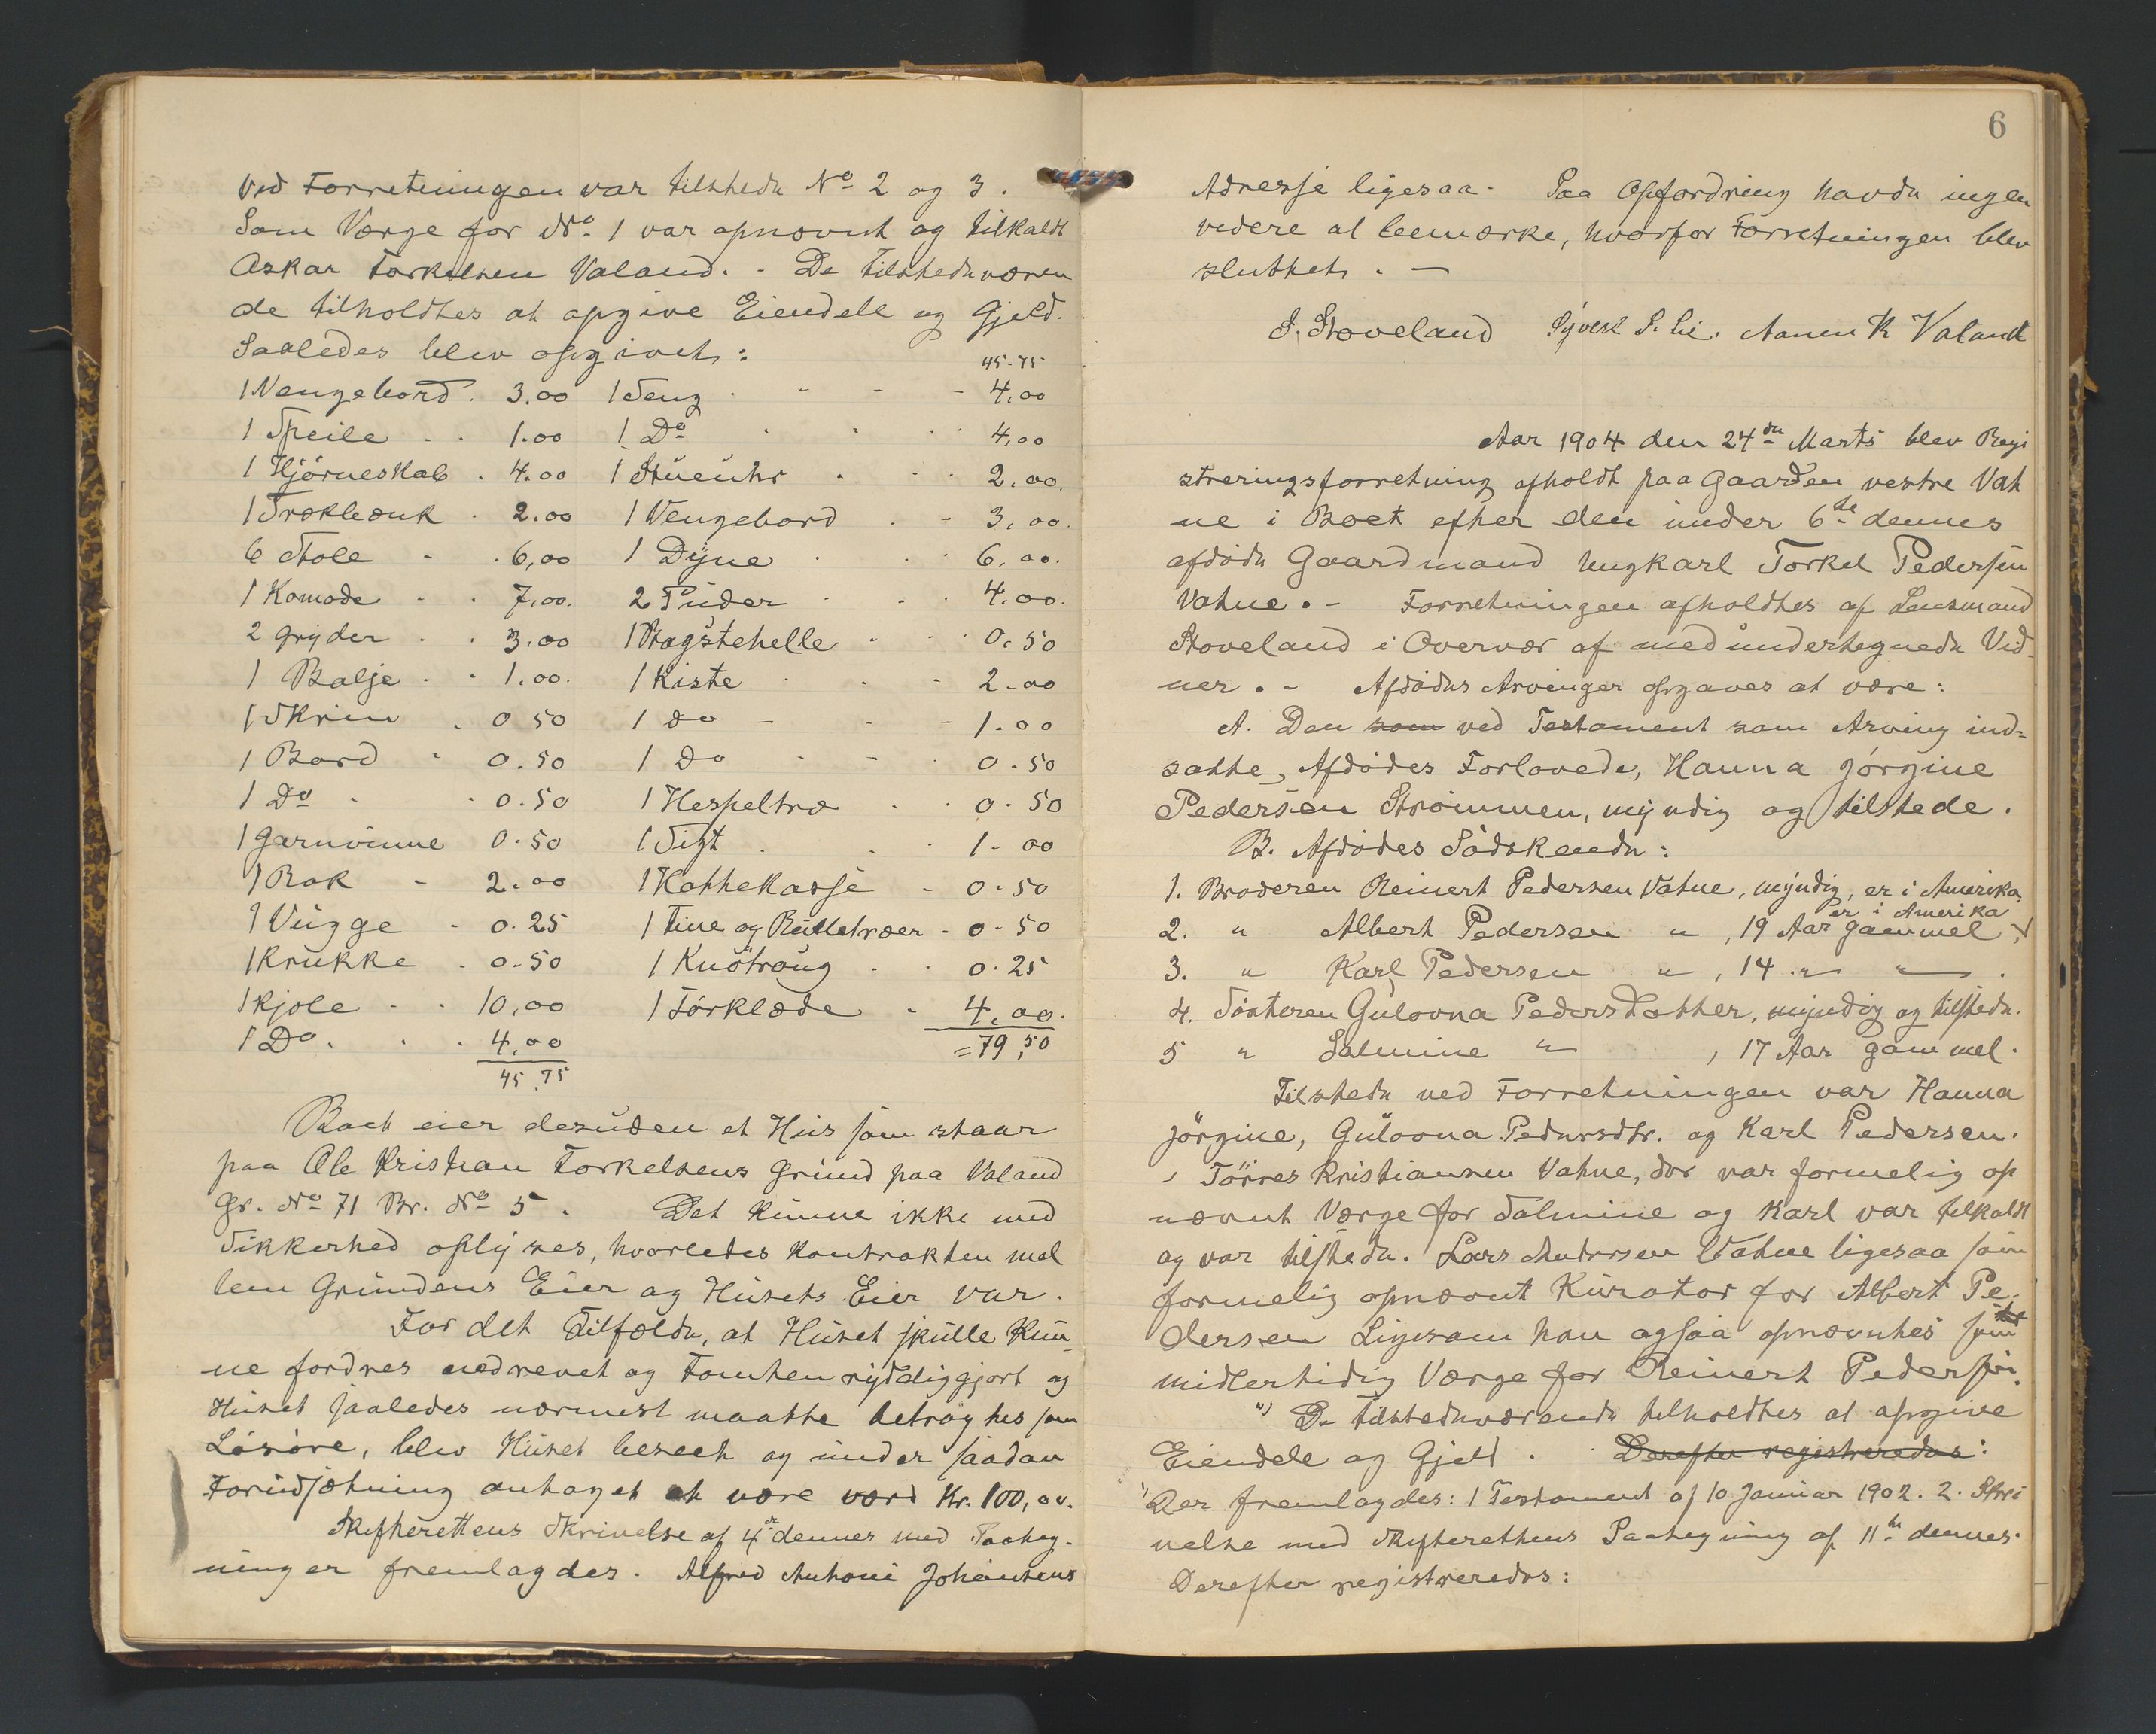 Ved Forretningen var tilstede No 2 og 3.
Som Værge for No 1 var opnævnt og tilkaldt
Askar Torkelsen Valand. - De tilstedeværen
de tilholdtes at opgive Eiendele og Gjeld.
Saaledes blev opgivet:
45-75
1 Vengebord . 3.00 1 Seng - - - 4,00
1 Speile . . 1.00 1 Do . . . 4,00
1 Hjörneskab . 4.00 1 Stueuhr . . 2.00.
1 Trækbænk . 2.00 1 Vengebord . - 3,00.
6 Stole - . 6,00 1 Dyne . . 6,00.
1 Komode - . 7,00. 2 Puder . . . 4.00.
2 Gryder . . 3.00 1 Bagstehelle . . . 0.50
1 Balje . . 1.00. 1 Kiste . . . 2.00
1 Skrin . 0 50 1 do - - - 1.00
1 Bord . 0.50 1 Do . . - 0.50
1 Do . . 0.50 1 Hespeltræ . . 0.50
1 Garnvinne 0.50 1 Sigt . . . 1.00
1 Rok - 2.00 1 Kaffekasse - 0.50
1 Vugge - 0.25 1 Tine og Rulletræer - 0.50
1 Krukke . 0.50 1 Knötroug . . 0.25
1 Kjole . . 10,00 1 Törklæde . 4,00.
1 Do . . . 4,00 = 79,50
45.75
Boet eier desuden et Hus som staar
paa Ole Kristian Torkelsens Grund paa Valand
Gr. No 71 Br. No 5. Det kunne ikke med
Sikkerhed oplyses, hvorledes Kontrakten mel
lem Grundens Eier og Husets Eier var.
For det Tilfælde, at Huset skulle Kun-
ne fordres nedrevet og Tomten ryddiggjort og
Huset saaledes nærmest maatte betragtes som
Lösöre, blev Huset beseet og under saadan
Forudsætning antaget at være værd Kr. 100,00.
Skifterettens Skrivelse af 4de dennes med Paateg-
ninger fremlagdes. Alfred Antoni Johansens
6
Adresse ligesaa. Paa Opfordring havde ingen
videre at bemærke, hvorfor Forretningen blev
sluttet. -
S. Stoveland Syvert S. Lie. Aanen K Valand
Aar 1904 den 24de Marts blev Regi
streringsforretning afholdt paa Gaarden vestre Vat
ne i Boet efter den under 6te dennes
afdöde Gaardmand Ungkarl Torkel Pedersen
Vatne. - Forretningen afholdtes af Lensmand
Stoveland i Overvær af medundertegnede Vid-
ner. - Afdödes Arvinger opgaves at være:
A. Den som ved Testament som Arving ind=
satte, Afdödes Forlovede, Hanna Jörgine
Pedersen Strömmen, myndig og tilstede.
B. Afdödes Södskende:
1. Broderen Reinert Pedersen Vatne, myndig, er i Amerika.
er i Amerika
2. " Albert Pedersen " , 19 Aar gammel
3. " Karl Pedersen " , 14 " " .
4. Sösteren Gulovna Pedersdatter, myndig og tilstede.
5 " Salmine " , 17 Aar gammel.
Tilstede ved Forretningen var Hanna
Jörgine, Gulovna Pedersdtr. og Karl Pedersen.
Törres Kristiansen Vatne, der var formelig op
nævnt Værge for Salmine og Karl var tilkaldt
og var tilstede. Lars Andersen Vatne ligesaa som
formelig opnævnt Kurator for Albert Pe-
dersen Ligesom han ogsaa opnævntes som
midlertidig Værge for Reinert Pedersen.
De tilstedeværende tilholdtes at opgive
Eiendele og Gjeld. Derefter registreredes:
Der fremlagdes: 1 Testament af 10 Januar 1902. 2. Skri
velse med Skifterettens Paategning af 11te dennes.
Derefter registreredes: